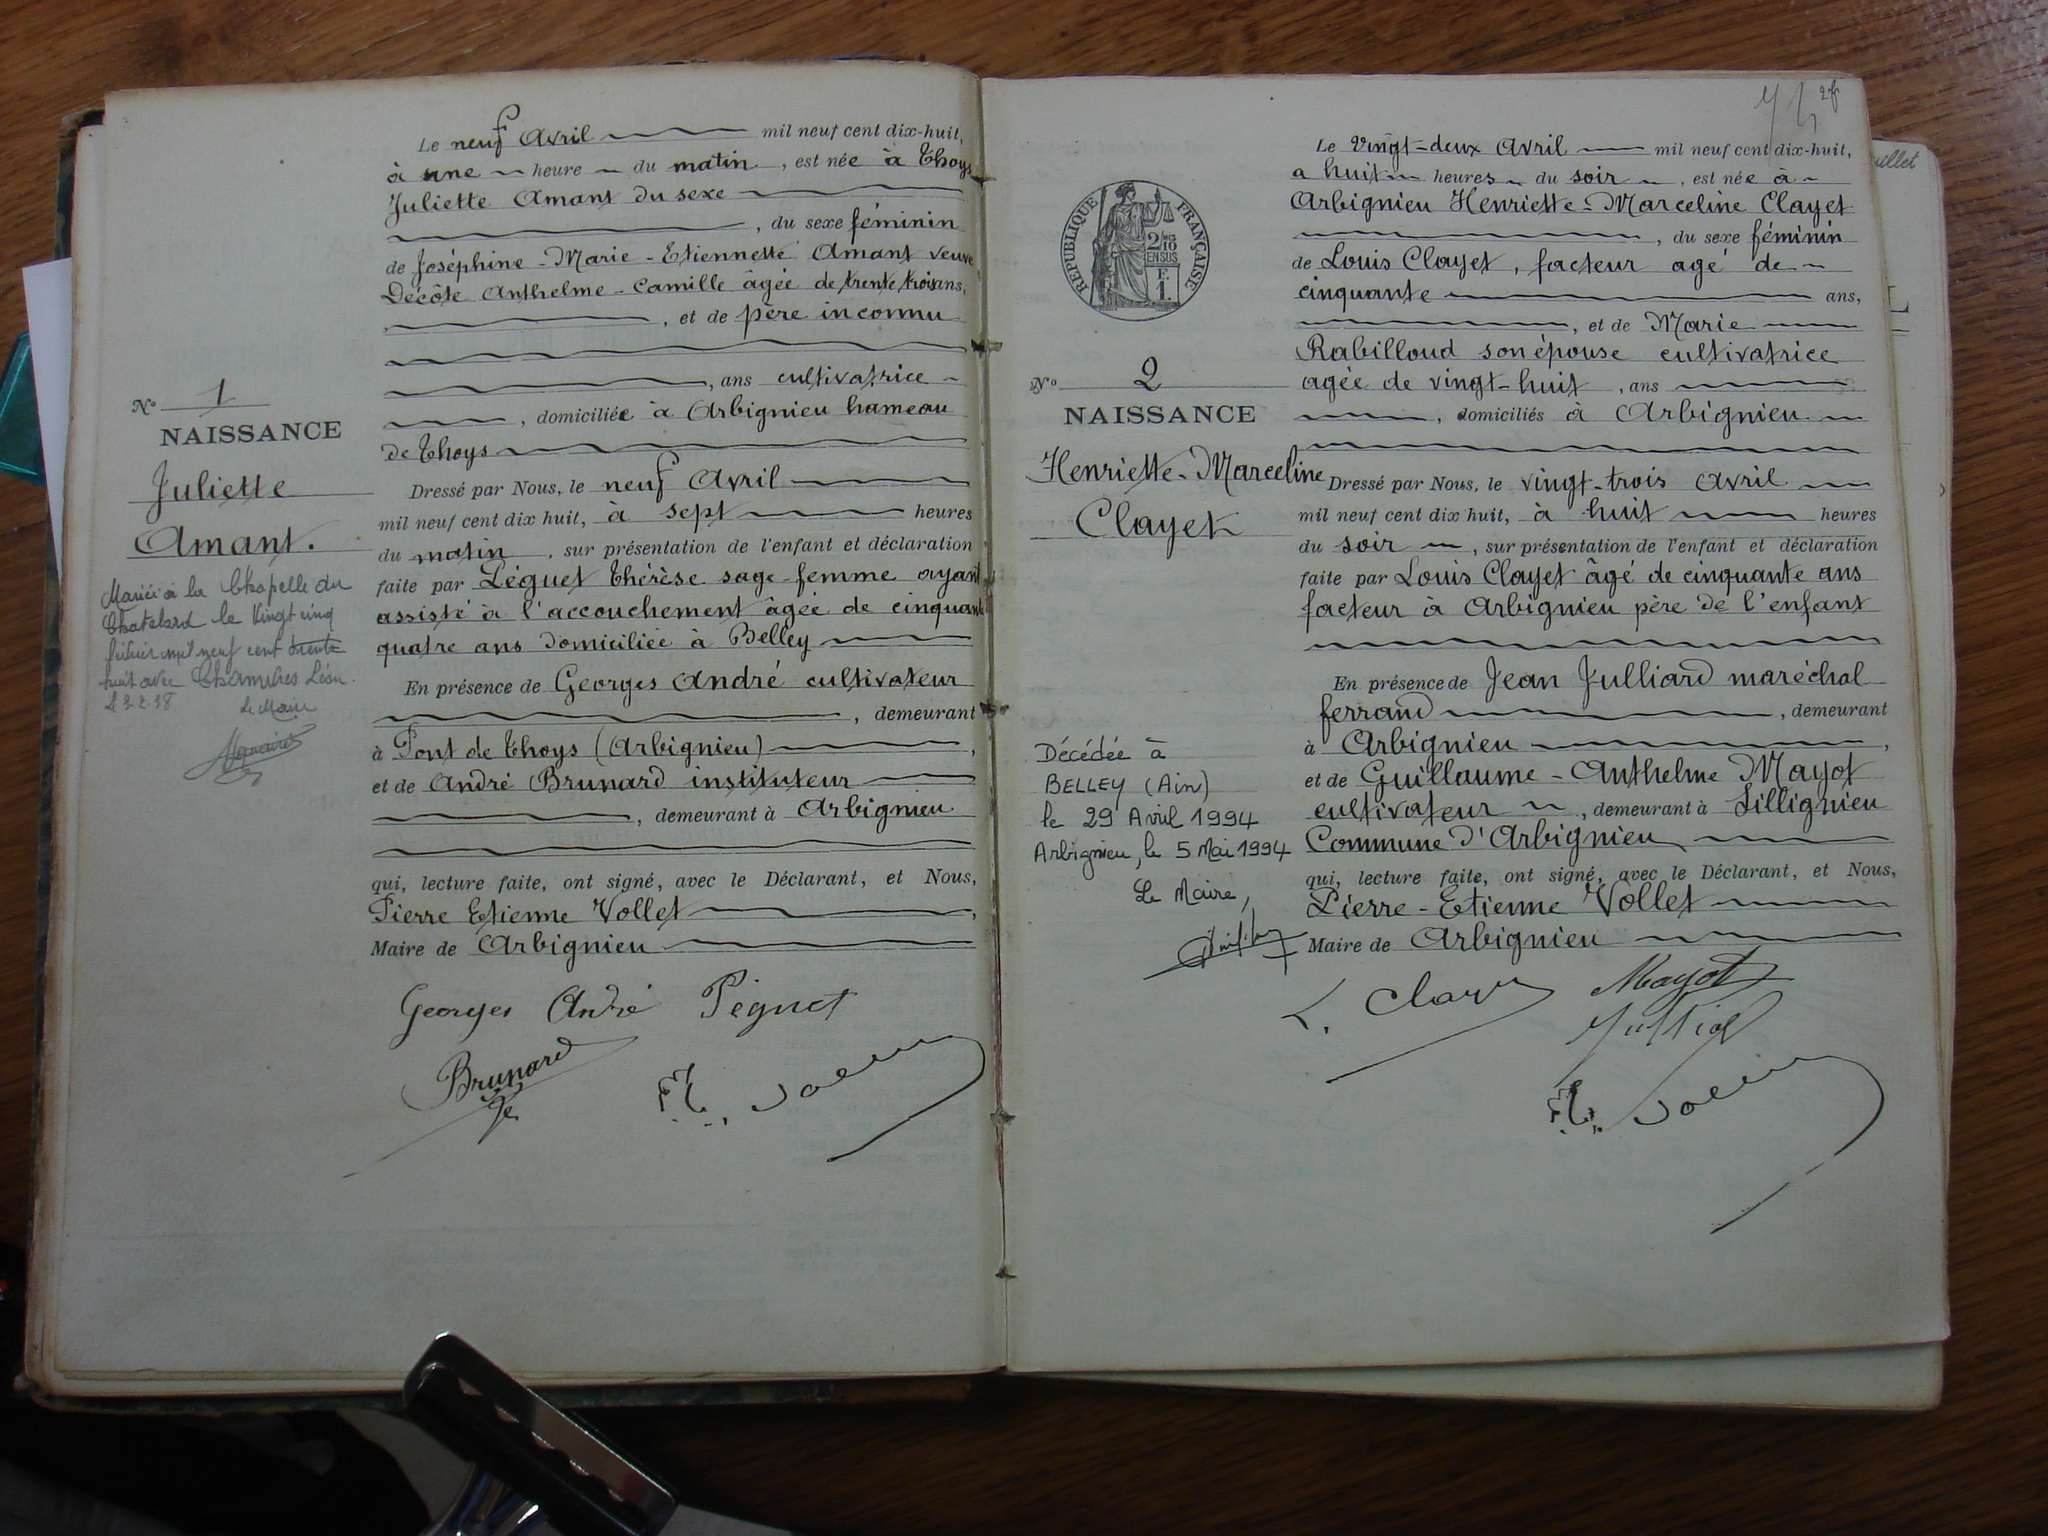 Le neuf Avril mil neuf cent dix-huit,
à une heure du matin, est née à Thoys
Juliette Amant du sexe
, du sexe féminin
de Joséphine-Marie-Etiennette Amant veuve
Décôte Anthelme-Camille âgée de trente trois ans,
, et de père inconnu
, ans cultivatrice
, domiciliée à Arbignieu hameau
de Thoys
Dressé par Nous, le neuf Avril
mil neuf cent dix huit, à sept heures
du matin, sur présentation de l'enfant et déclaration
faite par Péguet Thérèse sage-femme ayant
assisté à l'accouchement âgée de cinquante
quatre ans domiciliée à Belley
En présence de Georges André cultivateur
, demeurant
à Pont de Thoys (Arbignieu),
et de André Brunard instituteur
, demeurant à Arbignieu
qui, lecture faite, ont signé, avec le Déclarant, et Nous,
Pierre Etienne Vollet,
Maire de Arbignieu
Georges André Péguet
Brunard
N° 1
NAISSANCE
Juliette
Amant.
Mariée à la Chapelle du
Chatelard le vingt cinq
mil neuf cent trente
huit avec Léon.
Le Maire
2f
RÉPUBLIQUE FRANÇAISE
2/10
EN SUS
F.
1.
N° 2
NAISSANCE
Henriette-Marceline
Clayet
Décédée à
BELLEY (Ain)
le 29 Avril 1994
Arbignieu, le 5 Mai 1994
Le Maire,
Le Vingt-deux Avril mil neuf cent dix-huit,
a huit heures du soir, est née à
Arbignieu Henriette-Marceline Clayet
, du sexe féminin
de Louis Clayet, facteur agé de
cinquante ans,
, et de Marie
Rabilloud son épouse cultivatrice
agée de vingt-huit, ans
, domiciliés à Arbignieu
Dressé par Nous, le vingt-trois Avril
mil neuf cent dix huit, à huit heures
du soir, sur présentation de l'enfant et déclaration
faite par Louis Clayet âgé de cinquante ans
facteur à Arbignieu père de l'enfant
En présence de Jean Julliard maréchal
ferrand, demeurant
à Arbignieu,
et de Guillaume-Anthelme Mayot
cultivateur, demeurant à Sillignieu
Commune d'Arbignieu
qui, lecture faite, ont signé, avec le Déclarant, et Nous,
Pierre-Etienne Vollet
Maire de Arbignieu
Mayot
uillet